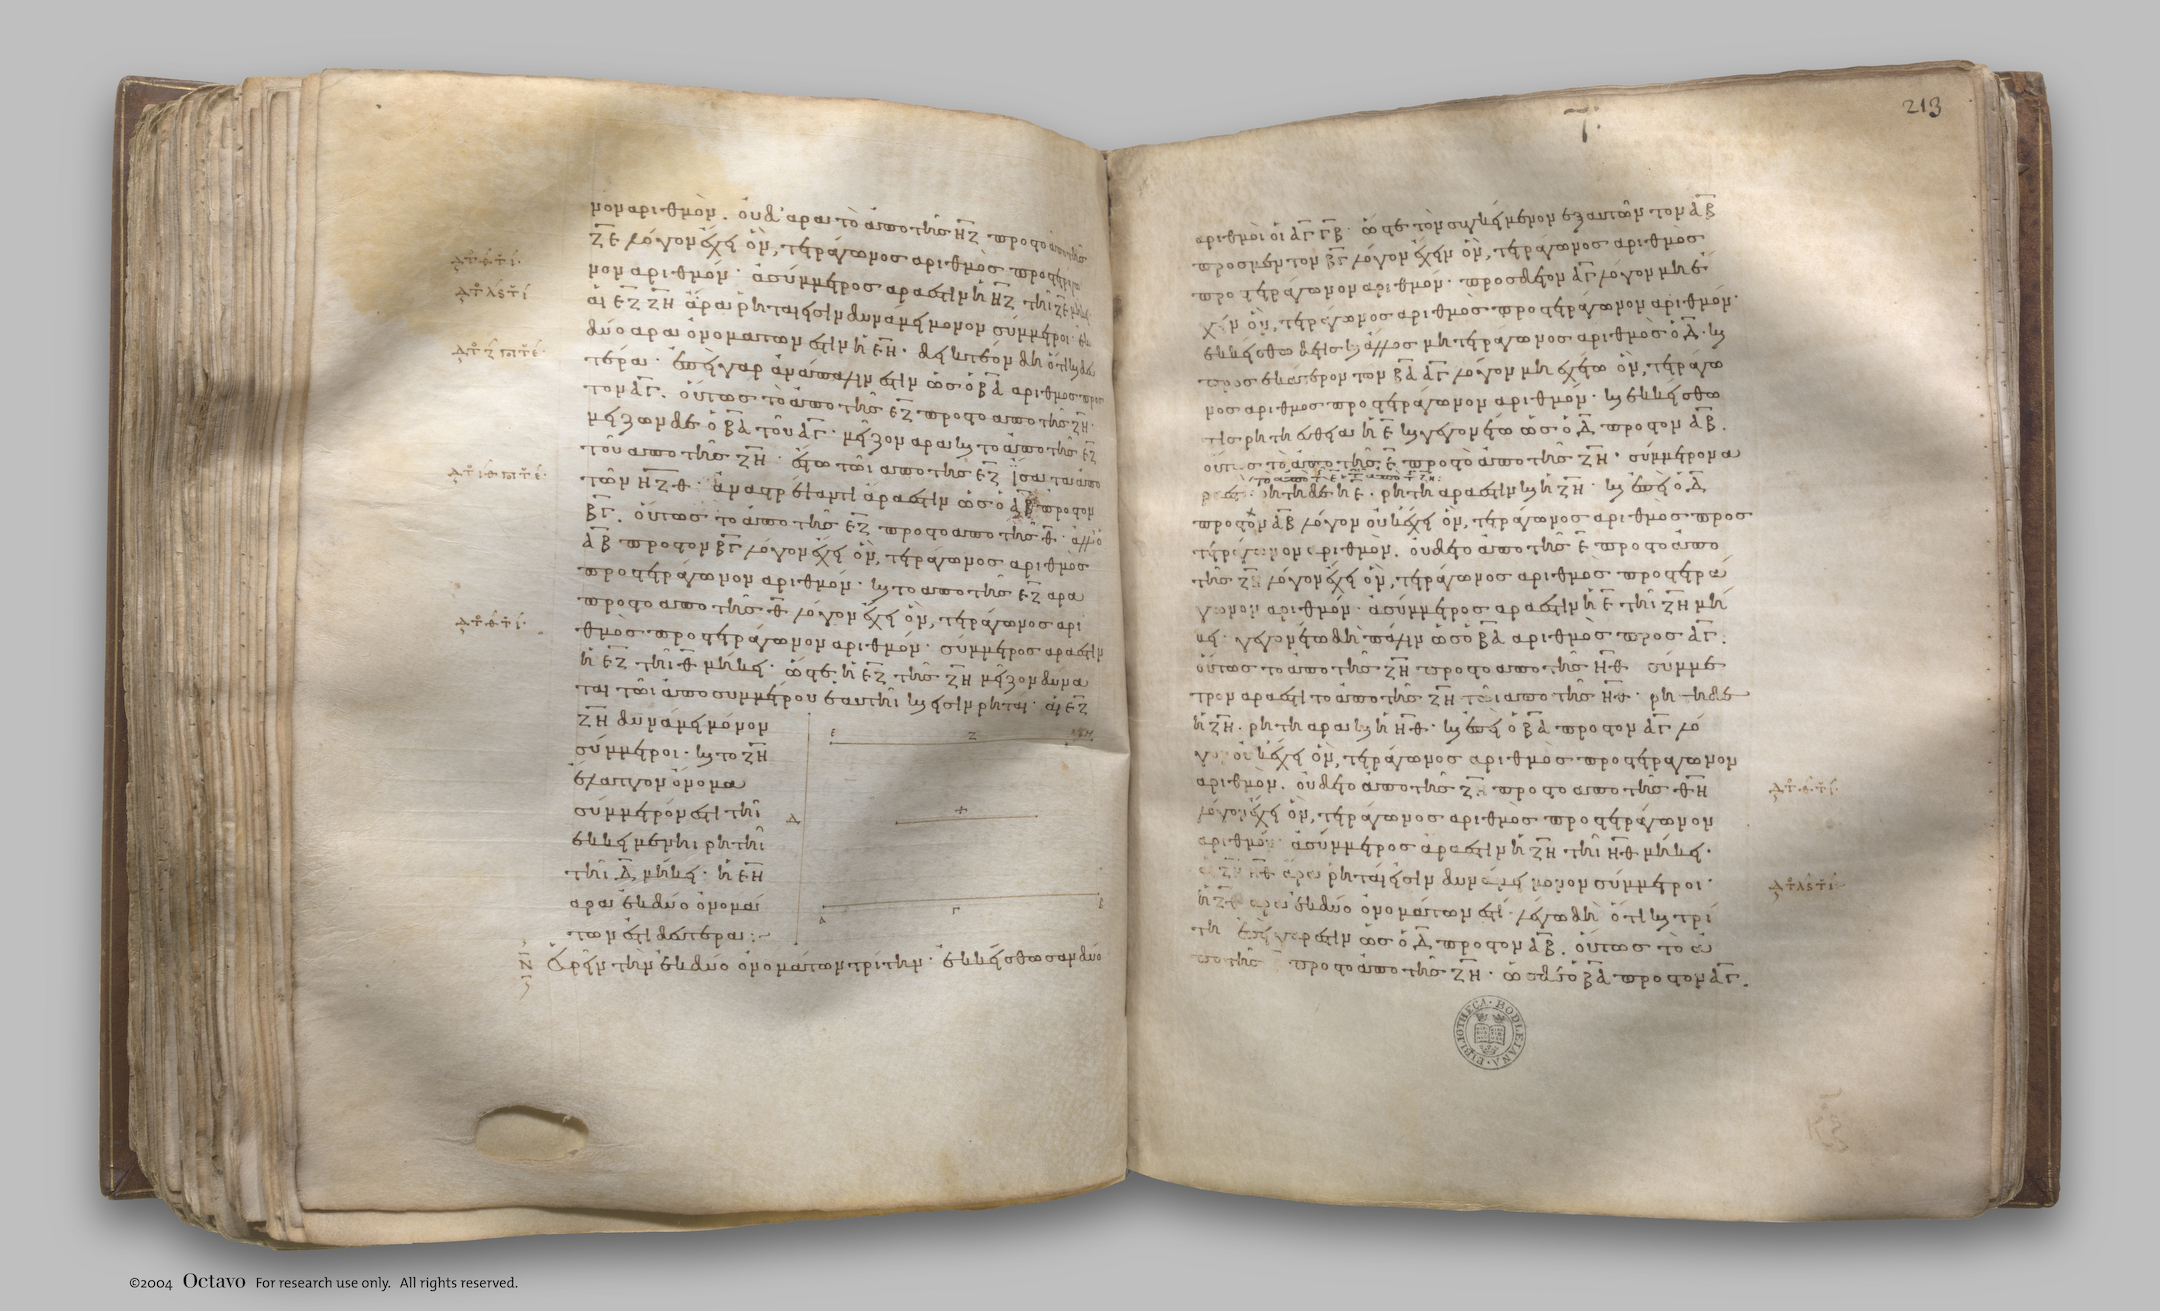 μον ἀριθμὸν. οὐδ' ἄρα τὸ ἀπὸ τῆς ΗΖ πρὸς τὸ ἀπὸ τῆς
ΖΕ λόγον ἔχει ὃν, τετράγωνος ἀριθμὸς πρὸς τετράγω
νον ἀριθμόν· ἀσύμμετρος ἄρα ἐστὶν ἡ ΗΖ τῆι ΖΕ μήκει
αἱ ΕΖ ΖΗ ἄρα ῥηταί εἰσιν δυνάμει μόνον σύμμετροι· ἐκ
δύο ἄρα ὀνομάτων ἐστὶν ἡ ΕΗ· δεικτέον δὴ ὅτι καὶ δευ
τέρα· ἐπεὶ γὰρ ἀνάπαλιν ἐστὶν ὡς ὁ ΒΑ ἀριθμὸς πρὸς
τὸν ΑΓ. οὕτως τὸ ἀπὸ τῆς ΕΖ πρὸς τὸ ἀπὸ τῆς ΖΗ·
μείζων δὲ ὁ ΒΑ τοῦ ΑΓ· μεῖζον ἄρα καὶ τὸ ἀπὸ τῆς ΕΖ
τοῦ ἀπὸ τῆς ΖΗ· ἔστω τῶι ἀπὸ τῆς ΕΖ ἴσα τὰ ἀπὸ
τῶν ΗΖ Θ· ἀναστρέψαντι ἄρα ἐστὶν ὡς ὁ ΑΒ πρὸς τὸν
ΒΓ. οὕτως τὸ ἀπὸ τῆς ΕΖ πρὸς τὸ ἀπὸ τῆς Θ· ἀλλ' ὁ
ΑΒ πρὸς τὸν ΒΓ λόγον ἔχει ὃν, τετράγωνος ἀριθμὸς
πρὸς τετράγωνον ἀριθμόν· καὶ τὸ ἀπὸ τῆς ΕΖ ἄρα
πρὸς τὸ ἀπὸ τῆς Θ λόγον ἔχει ὃν, τετράγωνος ἀρι
θμὸς πρὸς τετράγωνον ἀριθμόν· σύμμετρος ἄρα ἐστὶν
ἡ ΕΖ τῆι Θ μήκει· ὥστε ἡ ΕΖ τῆς ΖΗ μεῖζον δύνα
ται τῶι ἀπὸ συμμέτρου ἑαυτῆι καὶ εἰσιν ῥηταί· αἱ ΕΖ
ΖΗ δυνάμει μόνον
σύμμετροι· καὶ τὸ ΖΗ
ἔλαττον ὄνομα
σύμμετρόν ἐστι τῆι
ἐκκειμένηι ῥητῆι
τῆι Δ μήκει· ἡ ΕΗ
ἄρα ἐκ δύο ὀνομά
των ἐστὶ δευτέρα:~
Ε Ζ Η
Δ Θ
Α Γ Β
Εὑρεῖν τὴν ἐκ δύο ὀνομάτων τρίτην· ἐκκείσθωσαν δύο
213
ἀριθμοὶ οἱ ΑΓ ΓΒ· ὥστε τὸν συγκείμενον ἐξ αὐτῶν τὸν ΑΒ
πρὸς μὲν τὸν ΒΓ λόγον ἔχειν ὃν, τετράγωνος ἀριθμὸς
πρὸς τετράγωνον ἀριθμόν· πρὸς δὲ τὸν ΑΓ λόγον μὴ ἔ
χειν ὃν, τετράγωνος ἀριθμὸς πρὸς τετράγωνον ἀριθμόν·
ἐκκείσθω δέ τις καὶ ἄλλος μὴ τετράγωνος ἀριθμὸς ὁ Δ· καὶ
πρὸς ἑκάτερον τῶν ΒΑ ΑΓ λόγον μὴ ἐχέτω ὃν, τετράγω
νος ἀριθμὸς πρὸς τετράγωνον ἀριθμόν· καὶ ἐκκείσθω
τις ῥητὴ εὐθεῖα ἡ Ε καὶ γεγονέτω ὡς ὁ Δ πρὸς τὸν ΑΒ.
οὕτως τὸ ἀπὸ τῆς Ε πρὸς τὸ ἀπὸ τῆς ΖΗ· σύμμετρον ἄ
ρα ἐστὶ· ῥητὴ δὲ ἡ Ε. ῥητὴ ἄρα ἐστὶν καὶ ἡ ΖΗ· καὶ ἐπεὶ ὁ Δ
πρὸς τὸν ΑΒ λόγον οὐκ ἔχει ὃν, τετράγωνος ἀριθμὸς πρὸς
τετράγωνον ἀριθμὸν. οὐδὲ τὸ ἀπὸ τῆς Ε πρὸς τὸ ἀπὸ
τῆς ΖΗ λόγον ἔχει ὃν, τετράγωνος ἀριθμὸς πρὸς τετρά
γωνον ἀριθμόν· ἀσύμμετρος ἄρα ἐστὶν ἡ Ε τῆι ΖΗ μή
κει· γεγονέτω δὴ πάλιν ὡς ὁ ΒΑ ἀριθμὸς πρὸς ΑΓ·
οὕτως τὸ ἀπὸ τῆς ΖΗ πρὸς τὸ ἀπὸ τῆς ΗΘ σύμμε
τρον ἄρα ἐστὶ τὸ ἀπὸ τῆς ΖΗ τῶι ἀπὸ τῆς ΗΘ· ῥητὴ δὲ
ἡ ΖΗ. ῥητὴ ἄρα καὶ ἡ ΗΘ· καὶ ἐπεὶ ὁ ΒΑ πρὸς τὸν ΑΓ λό
γον οὐκ ἔχει ὃν, τετράγωνος ἀριθμὸς πρὸς τετράγωνον
ἀριθμὸν. οὐδὲ τὸ ἀπὸ τῆς ΖΗ πρὸς τὸ ἀπὸ τῆς ΘΗ
λόγον ἔχει ὃν, τετράγωνος ἀριθμὸς πρὸς τετράγωνον
ἀριθμόν· ἀσύμμετρος ἄρα ἐστὶν ἡ ΖΗ τῆι ΗΘ μήκει·
αἱ ΖΗ ΗΘ ἄρα ῥηταί εἰσιν δυνάμει μόνον σύμμετροι·
ἡ ΖΘ ἄρα ἐκ δύο ὀνομάτων ἐστὶ· λέγω δὴ ὅτι καὶ τρί
τη ἐπεὶ γάρ ἐστιν ὡς ὁ Δ πρὸς τὸν ΑΒ. οὕτως τὸ ἀ
πὸ τῆς Ε πρὸς τὸ ἀπὸ τῆς ΖΗ· ὡς δὲ ὁ ΒΑ πρὸς τὸν ΑΓ.
BIBLIOTHECA BODLEIANA
©2004 Octavo For research use only. All rights reserved.